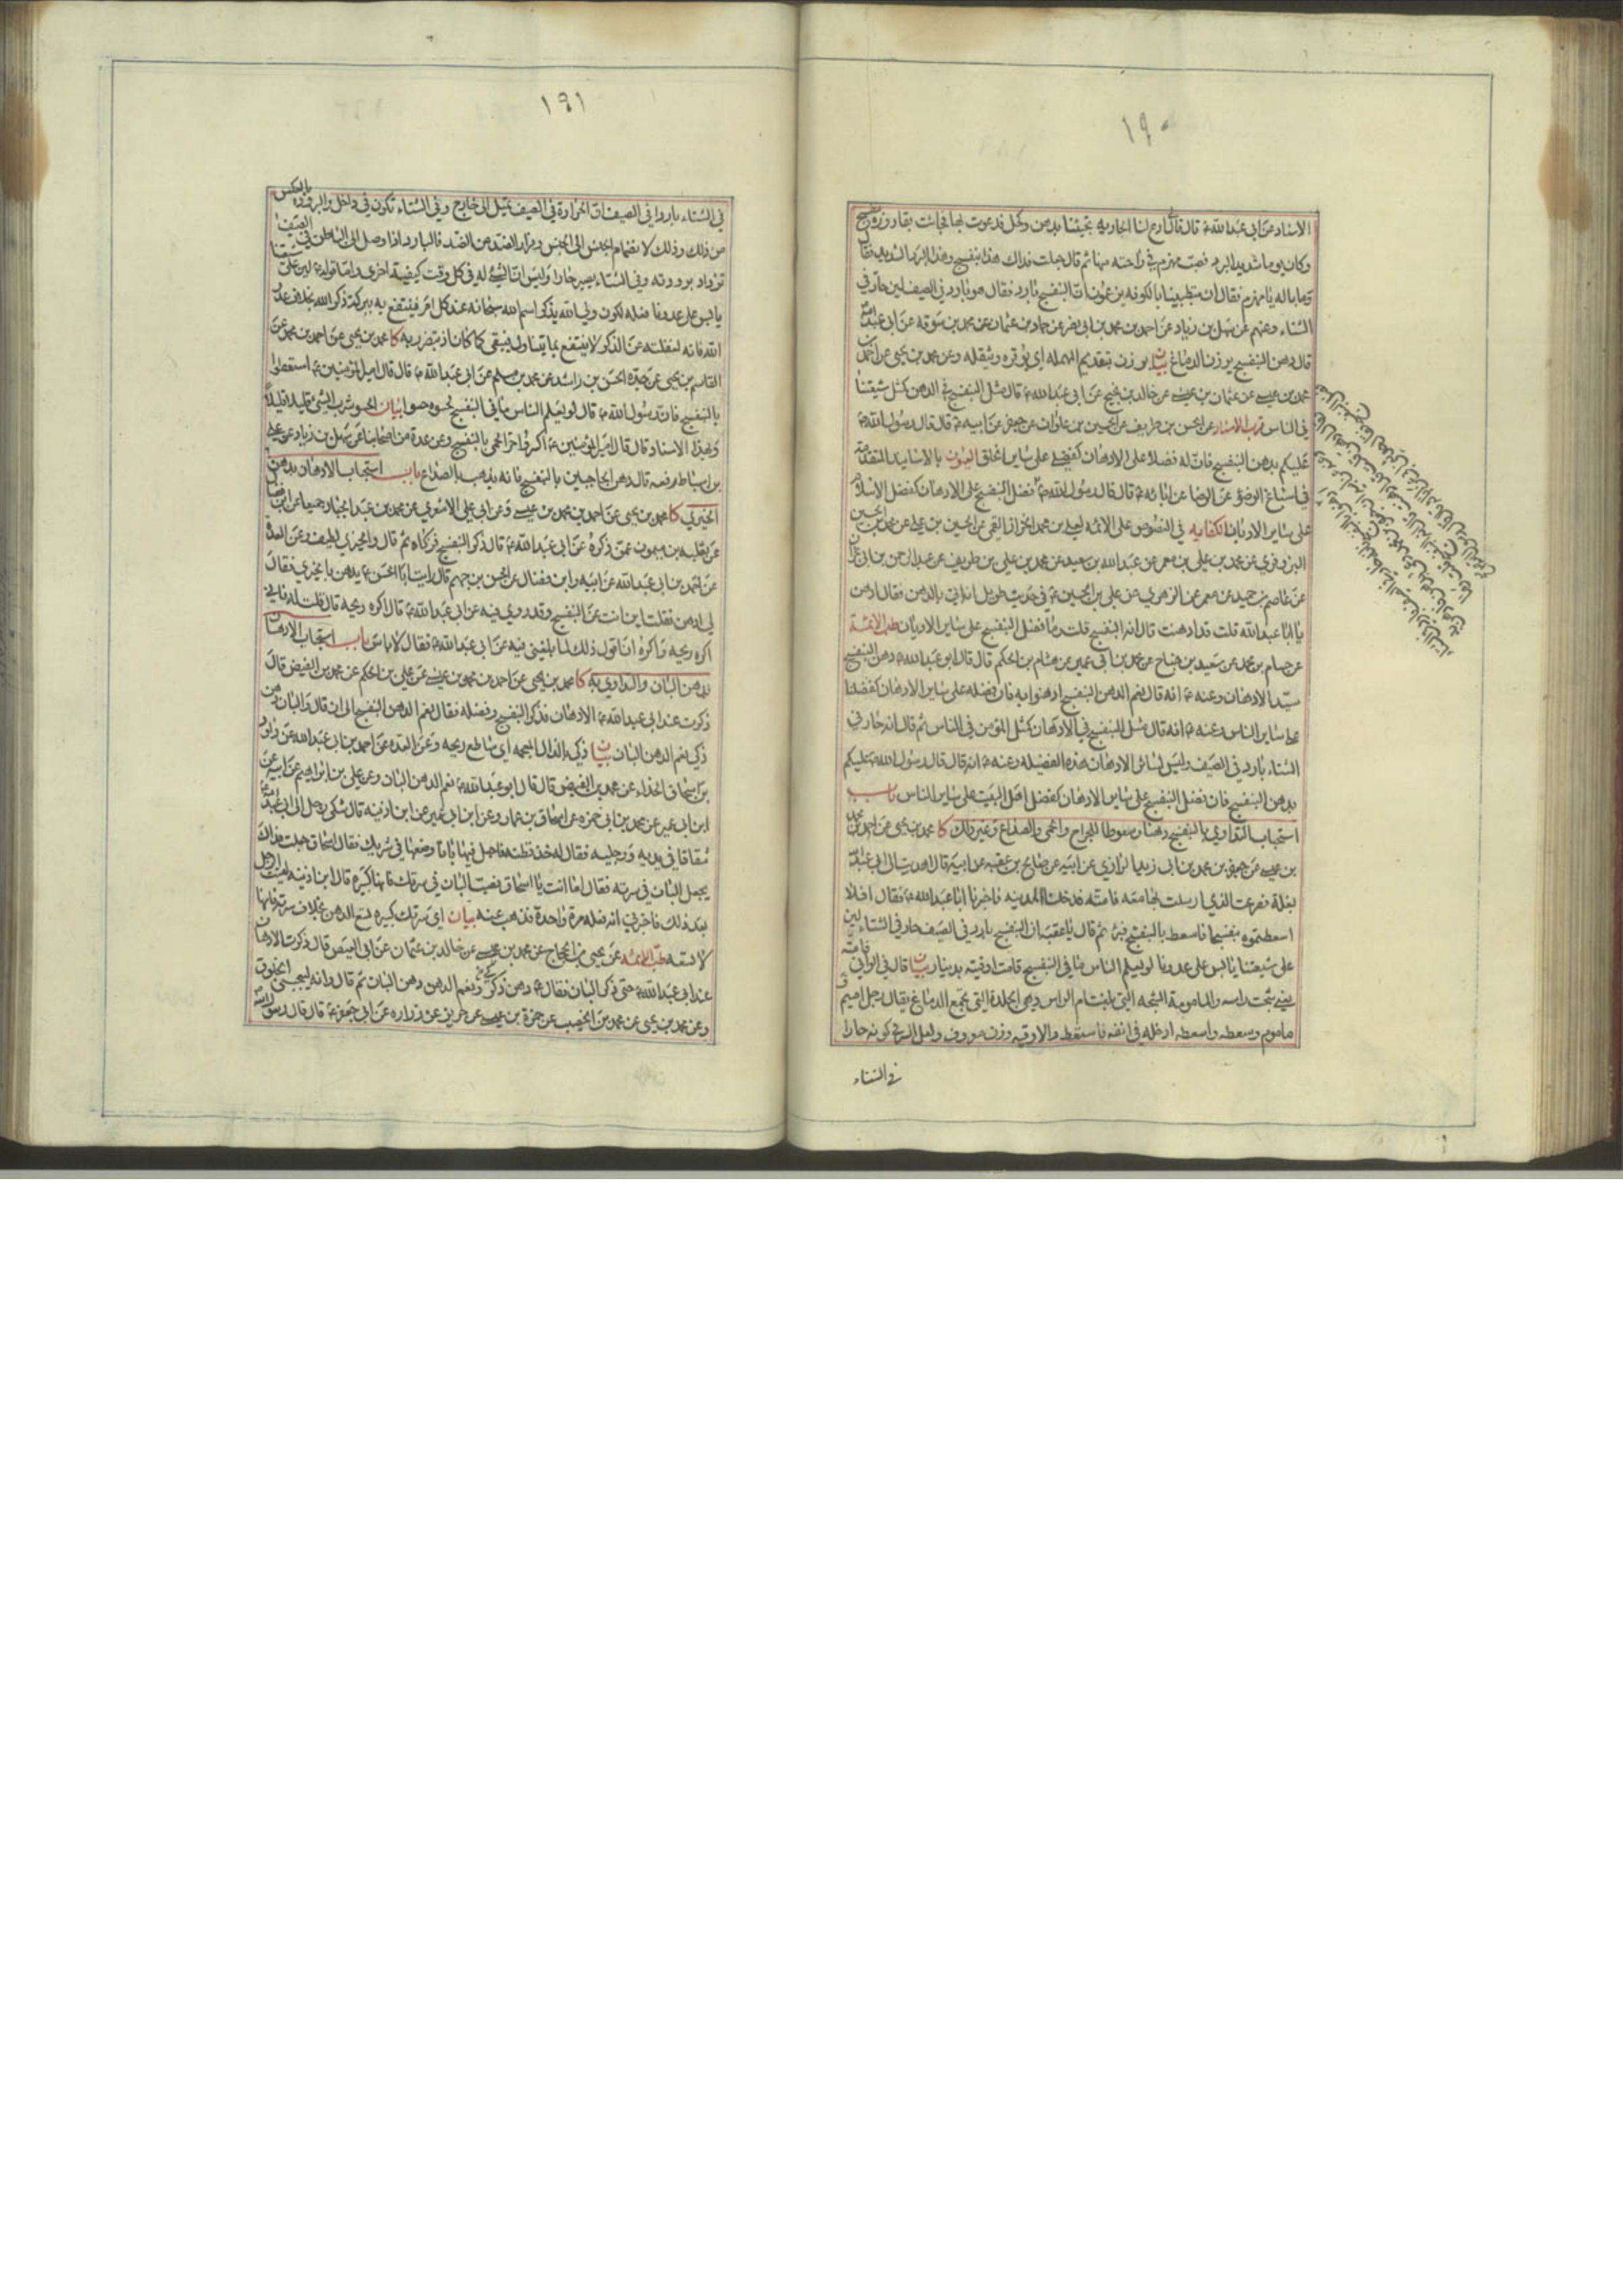 ١٩٠
الاسناد عن ابي عبد الله ع قال قال ادع لنا الجارية تجيئنا بدهن وكحل فدعوت بها فجاءت بقارورة بنفسج
وكان يوما شديد البرد فصب مهزم في راحته منها ثم قال جعلت فداك هذا بنفسج وهذا البرد الشديد فقال
وما باله يا مهزم فقال ان متطببينا بالكوفه يزعمون ان البنفسج بارد فقال هو بارد في الصيف لين حار في
الشتاء وعنهم عن سهل بن زياد عن احمد بن محمد بن ابي نصر عن حماد بن عثمان عن محمد بن سوقه عن ابي عبد الله
قال دهن البنفسج يرزن الدماغ بيان يرزن بتقديم المهمله اي يوقره ويثقله وعن محمد بن يحيى عن احمد بن
محمد بن عيسى عن عثمان بن عيسى عن خالد بن نجيح عن ابي عبد الله ع قال مثل البنفسج في الدهن كمثل شيعتنا
في الناس قرب الاسناد عن الحسن بن ظريف عن الحسين بن علوان عن جعفر عن ابيه ع قال قال رسول الله ص
عليكم بدهن البنفسج فان له فضلا على الادهان كفضلي على ساير الخلق العيون بالاسانيد المتقدمة
في اسباغ الوضوء عن الرضا عن ابائه ع قال قال رسول الله ص فضل البنفسج على الادهان كفضل الاسلام
على ساير الاديان الكفايه في النصوص على الائمه لعلي بن محمد الخزاز القمي عن الحسين بن علي عن محمد بن الحسين
البزوفري عن محمد بن علي بن معمر عن عبد الله بن سعيد عن محمد بن علي بن طريف عن عبد الرحمن بن ابي نجران
عن عاصم بن حميد عن معمر عن الزهري عن علي بن الحسين ع في حديث طويل انه اتي بالدهن فقال ادهن
يا ابا عبد الله قلت قد ادهنت قال انه البنفسج قلت وما فضل البنفسج على ساير الادهان طب الائمة
عن حسام بن محمد عن سعيد بن جناح عن محمد بن ابي عمير عن هشام بن الحكم قال قال ابو عبد الله ع دهن البنفسج
سيد الادهان وعنه ع انه قال نعم الدهن البنفسج ادهنوا به فان فضله على ساير الادهان كفضلنا
على ساير الناس وعنه ع انه قال مثل البنفسج في الادهان كمثل المؤمن في الناس ثم قال انه حار في
الشتاء بارد في الصيف وليس لسائر الادهان هذه الفضيله وعنه ع انه قال قال رسول الله ص عليكم
بدهن البنفسج فان فضل البنفسج على ساير الادهان كفضل اهل البيت على ساير الناس باب
استحباب التداوي بالبنفسج دهنا وسعوطا للجراح والحمى والصداع وغير ذلك كا محمد بن يحيى عن احمد بن محمد
بن عيسى عن جعفر بن محمد بن ابي زيد الرازي عن ابيه عن صالح بن عقبه عن ابيه قال اهديت الى ابي عبد الله
بغلة فصرعت الذي ارسلت بها معه فامته فدخلنا المدينه فاخبرنا ابا عبد الله ع فقال افلا
اسعطتموه بنفسجا فاسعط بالبنفسج فبرئ ثم قال يا عقبه ان البنفسج بارد في الصيف حار في الشتاء لين
على شيعتنا يابس على عدونا لو يعلم الناس ما في البنفسج قامت اوقيته بدينار بيان قال في الوافي فامته
يعني شجت راسه والمامومة الشجه التي بلغت ام الراس وهي الجلدة التي تجمع الدماغ يقال رجل اميم و
ماموم وسعطه واسعطه ادخله في انفه فاستعط والاوقيه وزن معروف ولعل السر في كونه حارا
في الشتاء
١٩١
في الشتاء باردا في الصيف ان الحرارة في الصيف تميل الى خارج وفي الشتاء تكون في داخل والبرودة بالعكس
من ذلك وذلك لانضمام الجنس الى الجنس وفرار الضد من الضد فالبارد اذا وصل الى الباطن في الصيف
تزداد برودته وفي الشتاء يصير حارا وليس ان الشيء له في كل وقت كيفية اخرى واما قوله ع لين على شيعتنا
يابس على عدونا فلعله لكون ولي الله يذكر اسم الله سبحانه عند كل امر فينتفع به ببركة ذكر الله بخلاف عدو
الله فانه لغفلته عن الذكر لا ينتفع بما يتناول فيبقى كما كان او يتضرر به كا محمد بن يحيى عن احمد بن محمد عن
القاسم بن يحيى عن جده الحسن بن راشد عن محمد بن مسلم عن ابي عبد الله ع قال قال امير المؤمنين ع استعطوا
بالبنفسج فان رسول الله ص قال لو يعلم الناس ما في البنفسج لحسوه حسوا بيان الحسو شرب الشيء قليلا قليلا
وبهذا الاسناد قال قال امير المؤمنين ع اكسروا حر الحمى بالبنفسج وعن عدة من اصحابنا عن سهل بن زياد عن علي
بن اسباط رفعه قال دهن الحاجبين بالبنفسج فانه يذهب بالصداع باب استحباب الادهان بدهن
الخيري كا محمد بن يحيى عن احمد بن محمد بن عيسى وعن ابي علي الاشعري عن محمد بن عبد الجبار جميعا عن ابن فضال
عن ثعلبه بن ميمون عمن ذكره عن ابي عبد الله ع قال ذكر البنفسج فزكاه ثم قال والخيري لطيف وعن العدة
عن احمد بن ابي عبد الله عن ابيه وابن فضال عن الحسن بن جهم قال رايت ابا الحسن ع يدهن بالخيري فقال
لي ادهن فقلت اين انت عن البنفسج وقد روي فيه عن ابي عبد الله ع قال اكره ريحه قال قلت له فاني
اكره ريحه واكره ان اقول ذلك لما بلغني فيه عن ابي عبد الله ع فقال لا باس باب استحباب الادهان
بدهن البان والتداوي به كا محمد بن يحيى عن احمد بن محمد بن عيسى عن علي بن الحكم عن محمد بن الفيض قال
ذكرت عند ابي عبد الله ع الادهان فذكر البنفسج وفضله فقال نعم الدهن البنفسج الى ان قال والبان دهن
ذكي نعم الدهن البان بيان ذكي بالذال المعجمه اي ساطع ريحه وعن العده عن احمد بن ابي عبد الله عن داود
بن اسحاق الحذاء عن محمد بن الفيض قال قال ابو عبد الله ع نعم الدهن البان وعن علي بن ابراهيم عن ابيه عن
ابن ابي عمير عن محمد بن ابي حمزه عن اسحاق بن عمار وعن ابن ابي عمير عن ابن اذينه قال شكى رجل الى ابي عبد الله
شقاقا في يديه ورجليه فقال له خذ قطنه فاجعل فيها بانا وضعها في سرتك فقال اسحاق جعلت فداك
يجعل البان في سرته فقال اما انت يا اسحاق فصب البان في سرتك فانها كبيره قال ابن اذينه لقيت الرجل
بعد ذلك فاخبرني انه فعله مرة واحدة فذهب عنه بيان اي سرتك كبيره تسع الدهن بخلاف سرته فانها
لا تسعه طب الائمه عن يحيى بن الحجاج عن محمد بن عيسى عن خالد بن عثمان عن ابي العيص قال ذكرت الادهان
عند ابي عبد الله ع حتى ذكر البان فقال ع دهن ذكر ونعم الدهن دهن البان ثم قال وانه ليعجبني الخلوق
وعن محمد بن يحيى عن محمد بن الخصيب عن حمزة بن عيسى عن حريز عن زراره عن ابي جعفر ع قال قال رسول الله